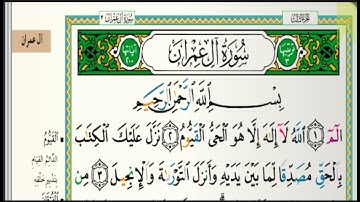 سُورَةُ آلِ عِمْرَان
الجزء الثالث
سُورَةُ آلِ عِمْرَان ٣
ترتيبها ٣
سُورَةُ آلِ عِمْرَان
آياتها ٢٠٠
آل عمران
بِسْمِ ٱللَّهِ ٱلرَّحْمَٰنِ ٱلرَّحِيمِ
الٓمٓ ١ ٱللَّهُ لَآ إِلَٰهَ إِلَّا هُوَ ٱلْحَىُّ ٱلْقَيُّومُ ٢ نَزَّلَ عَلَيْكَ ٱلْكِتَٰبَ
بِٱلْحَقِّ مُصَدِّقًا لِّمَا بَيْنَ يَدَيْهِ وَأَنزَلَ ٱلتَّوْرَىٰةَ وَٱلْإِنجِيلَ ٣ مِن
القَيُّومُ
الدَّائِمُ القِيَامِ
بِتَدْبِيرِ خَلْقِهِ